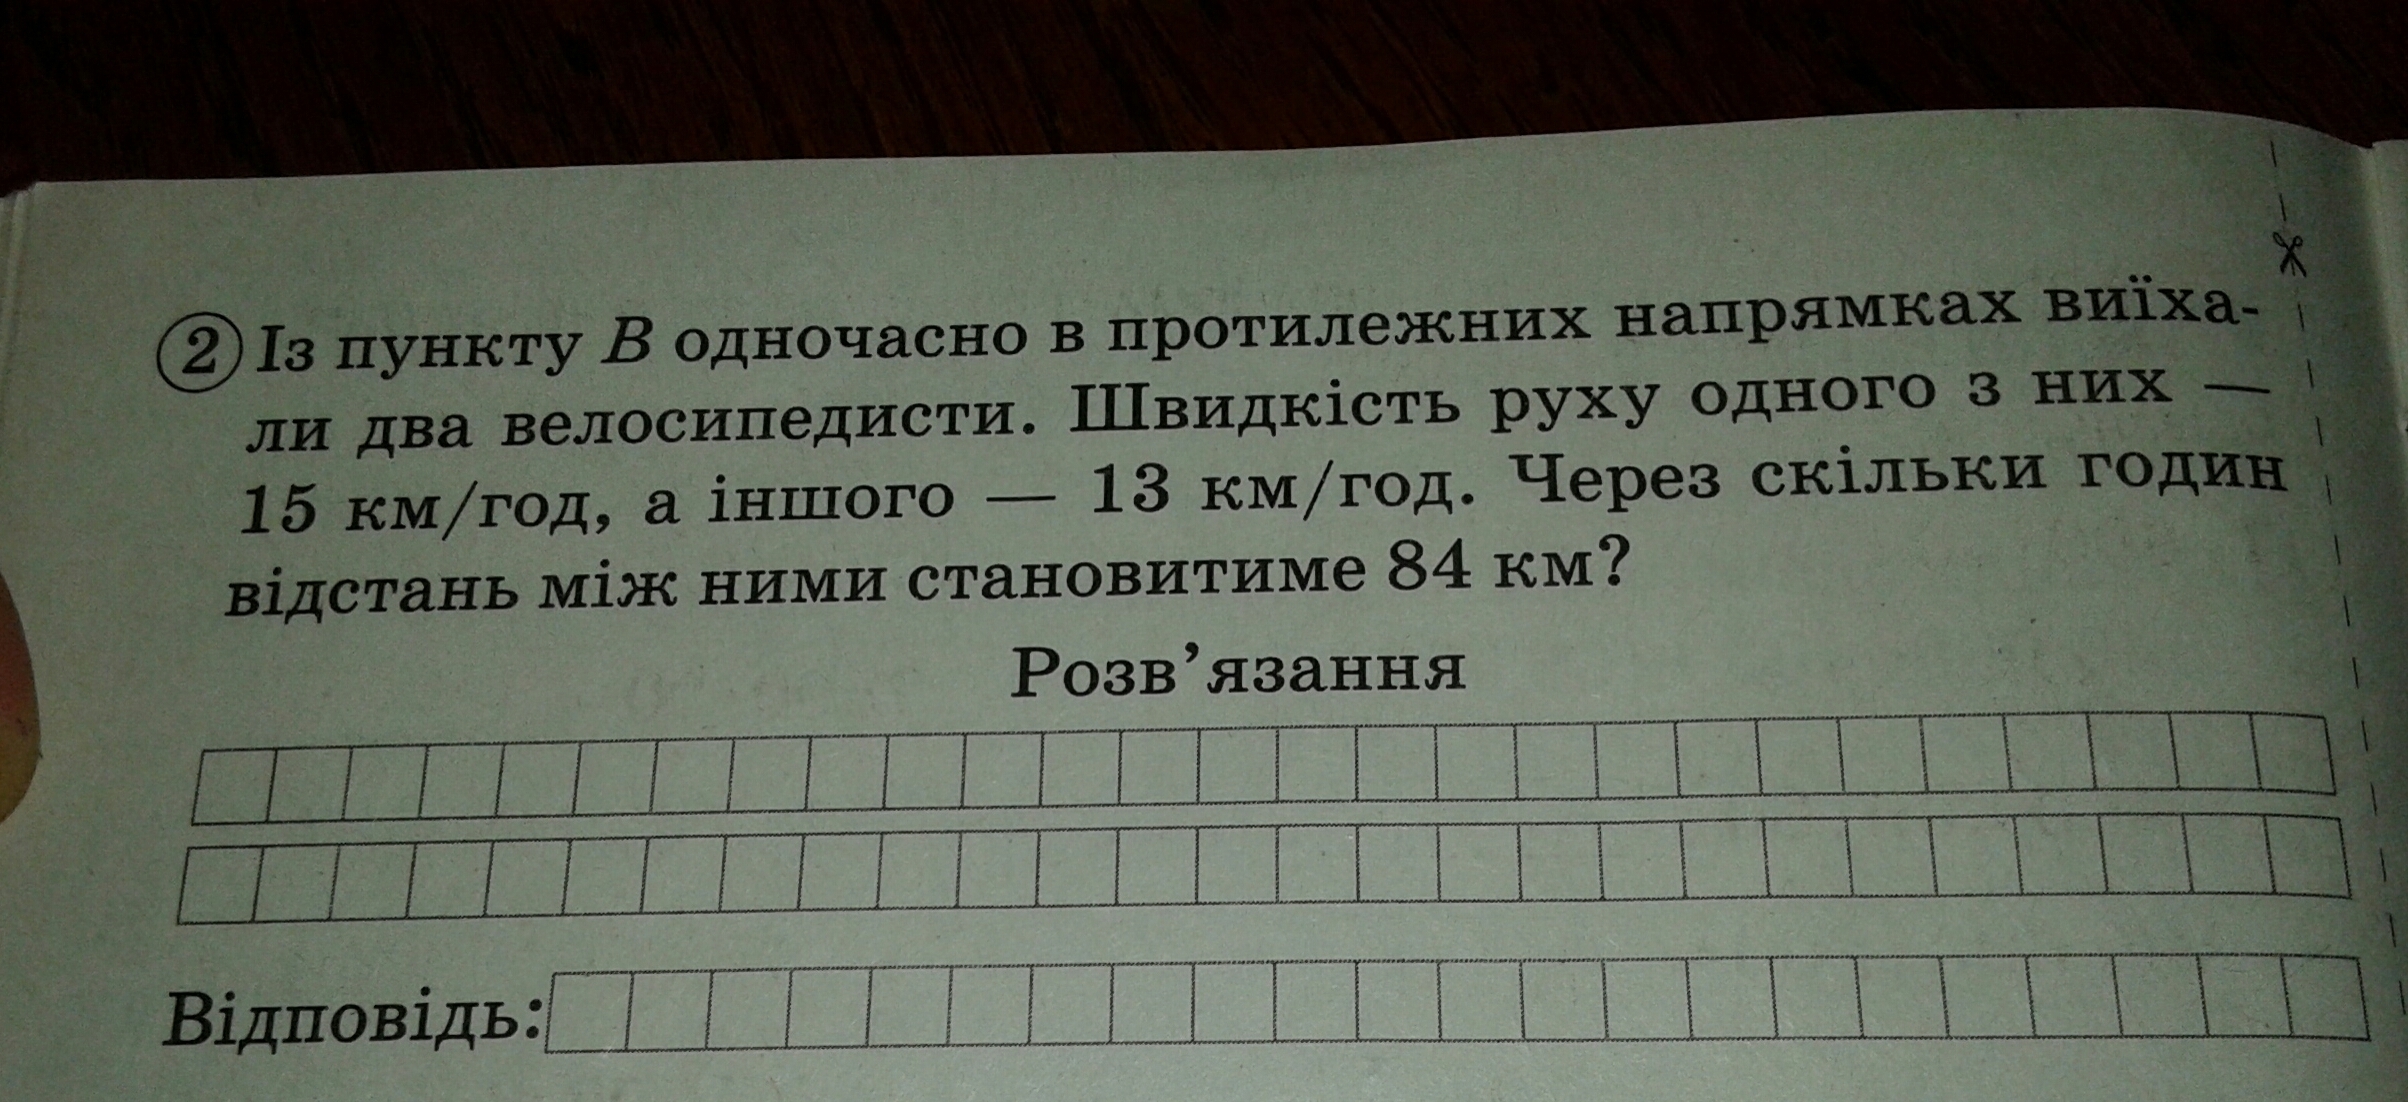 2 Із пункту В одночасно в протилежних напрямках виїха-
ли два велосипедисти. Швидкість руху одного з них —
15 км/год, а іншого — 13 км/год. Через скільки годин
відстань між ними становитиме 84 км?
Розв’язання
Відповідь: